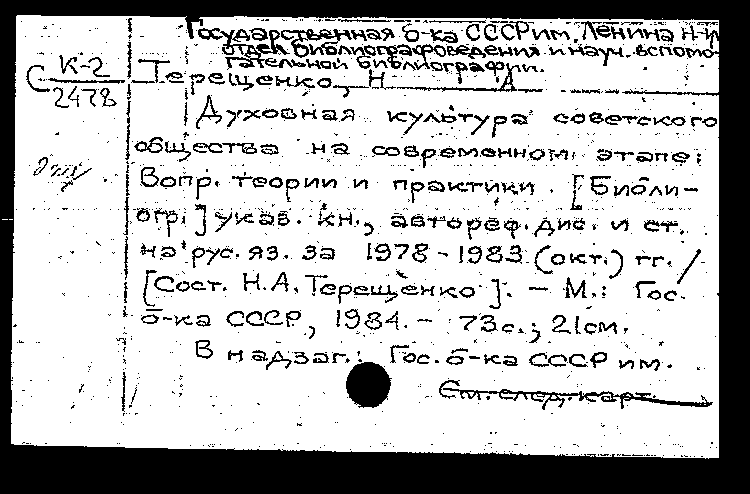 Государственная б-ка СССР им. Ленина Н-и
отдел библиографоведения и науч. вспомо-
гательной библиографии.
С К-2
2478
Терещенко, Н А
Духовная культура советского
общества на современном этапе:
Вопр. теории и практики. [Библи-
огр.] указ. кн., автореф. дис. и ст.
на рус. яз. за 1978-1983 (окт.) гг. /
[Сост. Н.А. Терещенко]. - М.: Гос.
б-ка СССР, 1984. - 73с.; 21см.
В надзаг.: Гос. б-ка СССР им.
См. след. карт.